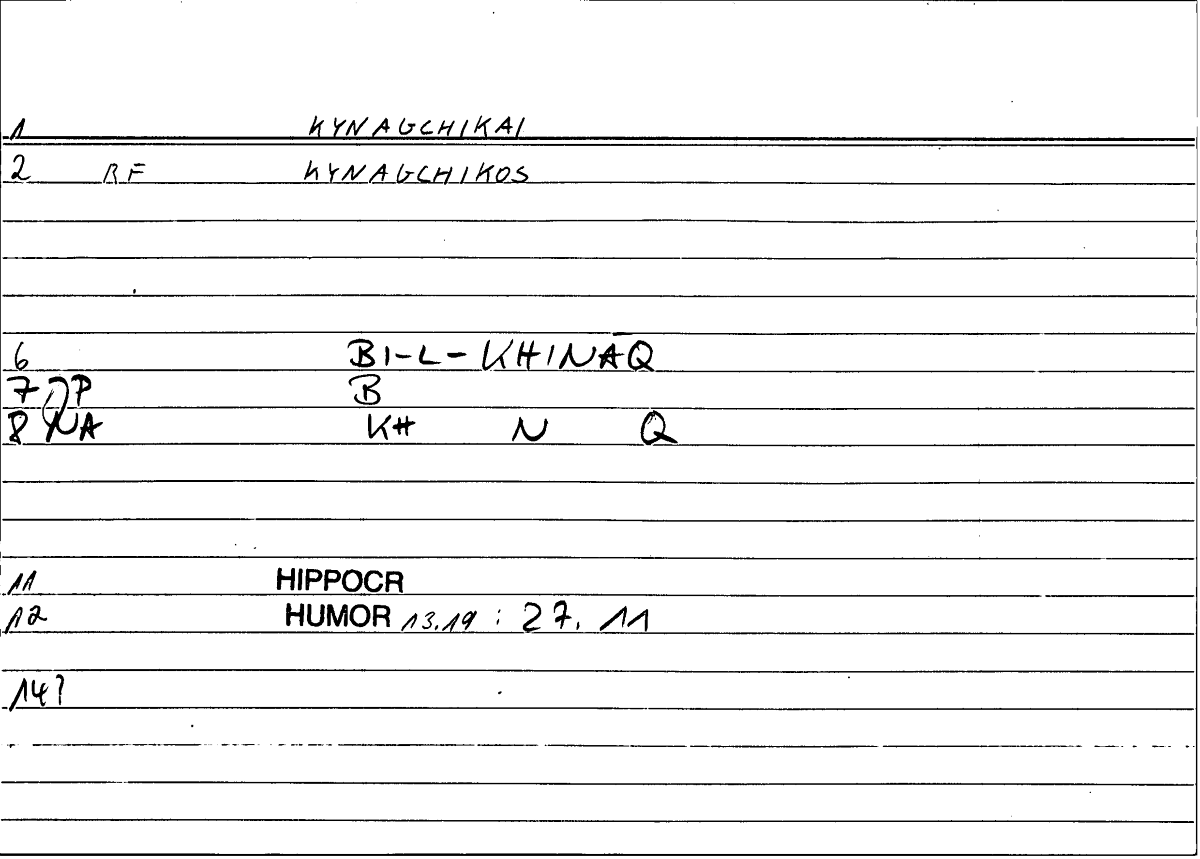 1 KYNAGCHIKAI
2 RF KYNAGCHIKOS
6 BI-L-KHINĀQ
7 P B
8 NA KH N Q
11 HIPPOCR
12 HUMOR 13.19 : 27. 11
14?